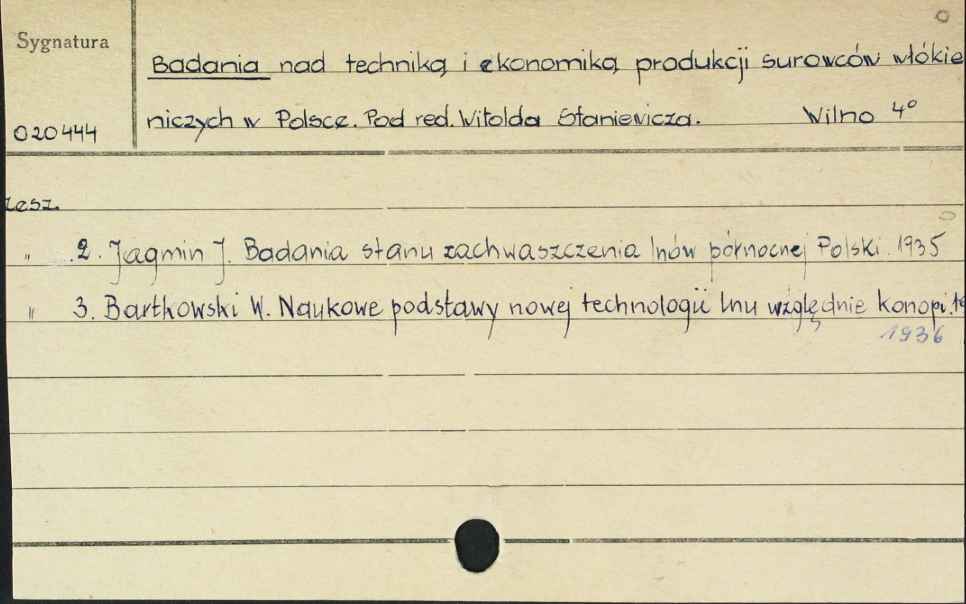 Sygnatura
Badania nad techniką i ekonomiką produkcji surowców włókie
niczych w Polsce. Pod red. Witolda Staniewicza. Wilno 4°
020444
zesz.
" 2. Jagmin J. Badania stanu zachwaszczenia lnów północnej Polski. 1935
" 3. Bartkowski W. Naukowe podstawy nowej technologii lnu względnie konopi.
1936